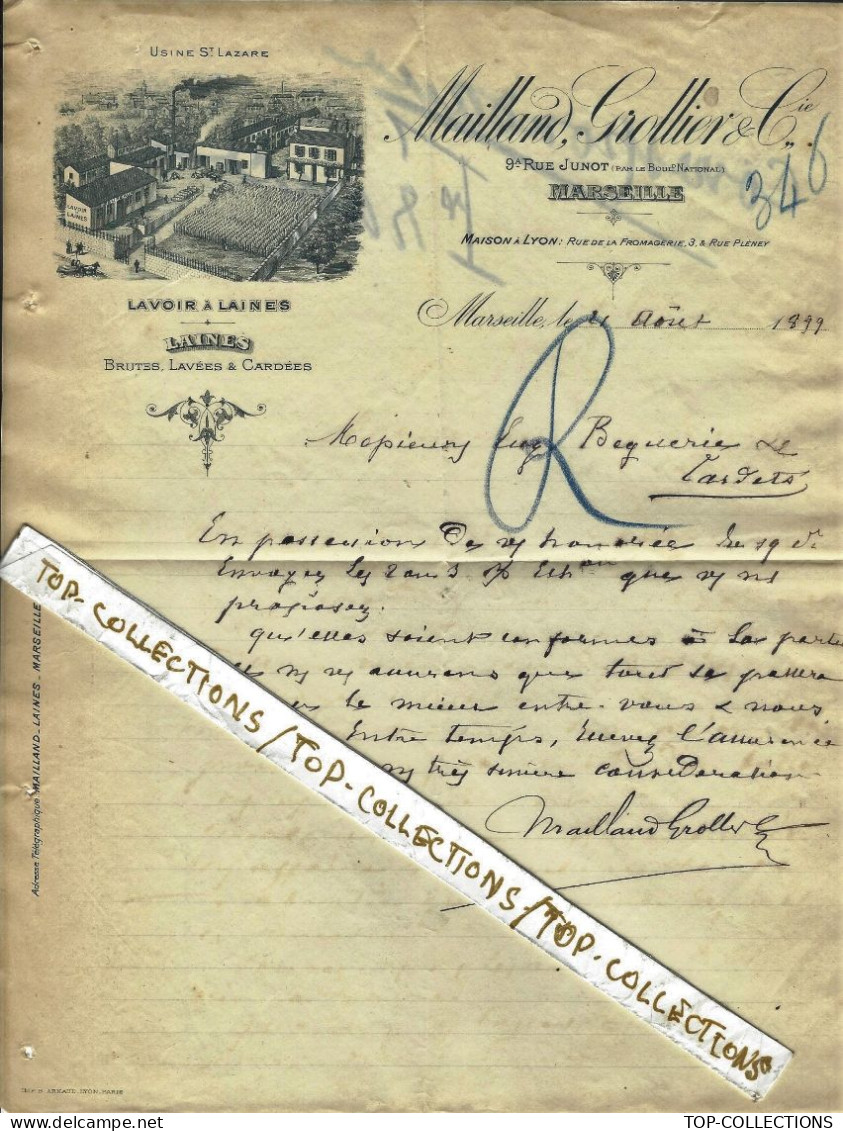 USINE ST LAZARE
LAVOIR A LAINES
Mailland, Grollier & Cie
9A RUE JUNOT (PAR LE BOULD NATIONAL)
MARSEILLE
346
MAISON À LYON: RUE DE LA FROMAGERIE, 3, & RUE PLÉNEY
LAVOIR À LAINES
LAINES
BRUTES, LAVÉES & CARDÉES
Marseille, le 21 Août 1899
R
Messieurs Eug Beguerie &
Tardets
En possession de v/ honorée du 19 ct
Envoyez les 2 ou 3 Echon que v/ ns
proposez.
qu'elles soient conformes à la partie
v/ aurons que tout se passera
le mieux entre vous & nous
Entre temps, Recevez l'assurance
très sincère considération
Mailland Grollier
Adresse Télégraphique: MAILLAND - LAINES - MARSEILLE
TOP-COLLECTIONS / TOP-COLLECTIONS / TOP-COLLECTIONS
ARNAUD, LYON, PARIS
TOP-COLLECTIONS